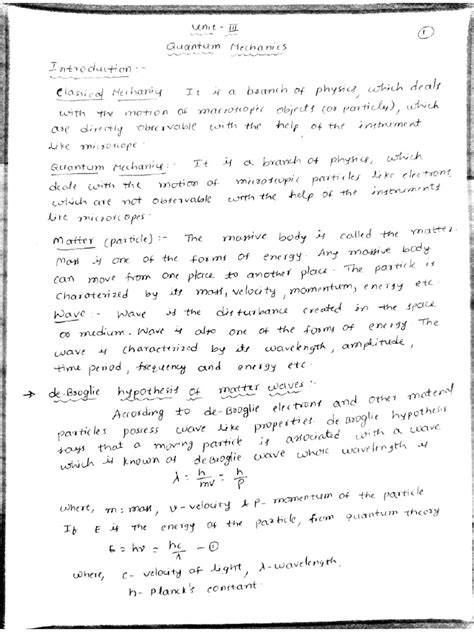 Unit - III
①
Quantum Mechanics
Introduction :-
Classical Mechanics : It is a branch of physics, which deals
with the motion of macroscopic objects (or particles), which
are directly observable with the help of the instrument
like microscope.
Quantum Mechanics :- It is a branch of physics, which
deals with the motion of microscopic particles like electrons,
which are not observable with the help of the instruments
like microscopes.
Matter (particle) :- The massive body is called the matter.
Mass is one of the forms of energy. Any massive body
can move from one place to another place. The particle is
charaterized by its mass, velocity, momentum, energy etc.
Wave :- Wave is the disturbance created in the space
or medium. Wave is also one of the forms of energy The
wave is characterized by its wavelength, amplitude,
time period, frequency and energy etc.
→ de-Broglie hypothesis of matter waves :-
According to de-Broglie electrons and other material
particles possess wave like properties. de Broglie hypothesis
says that a moving particle is associated with a wave
which is known as de Broglie wave whose wavelength is
λ = h/mv = h/p
where, m: mass, v - velocity & p - momentum of the particle
If E is the energy of the particle, from quantum theory
E = hν = hc/λ - ①
where, c - velocity of light, λ - wavelength,
h - Planck's constant.